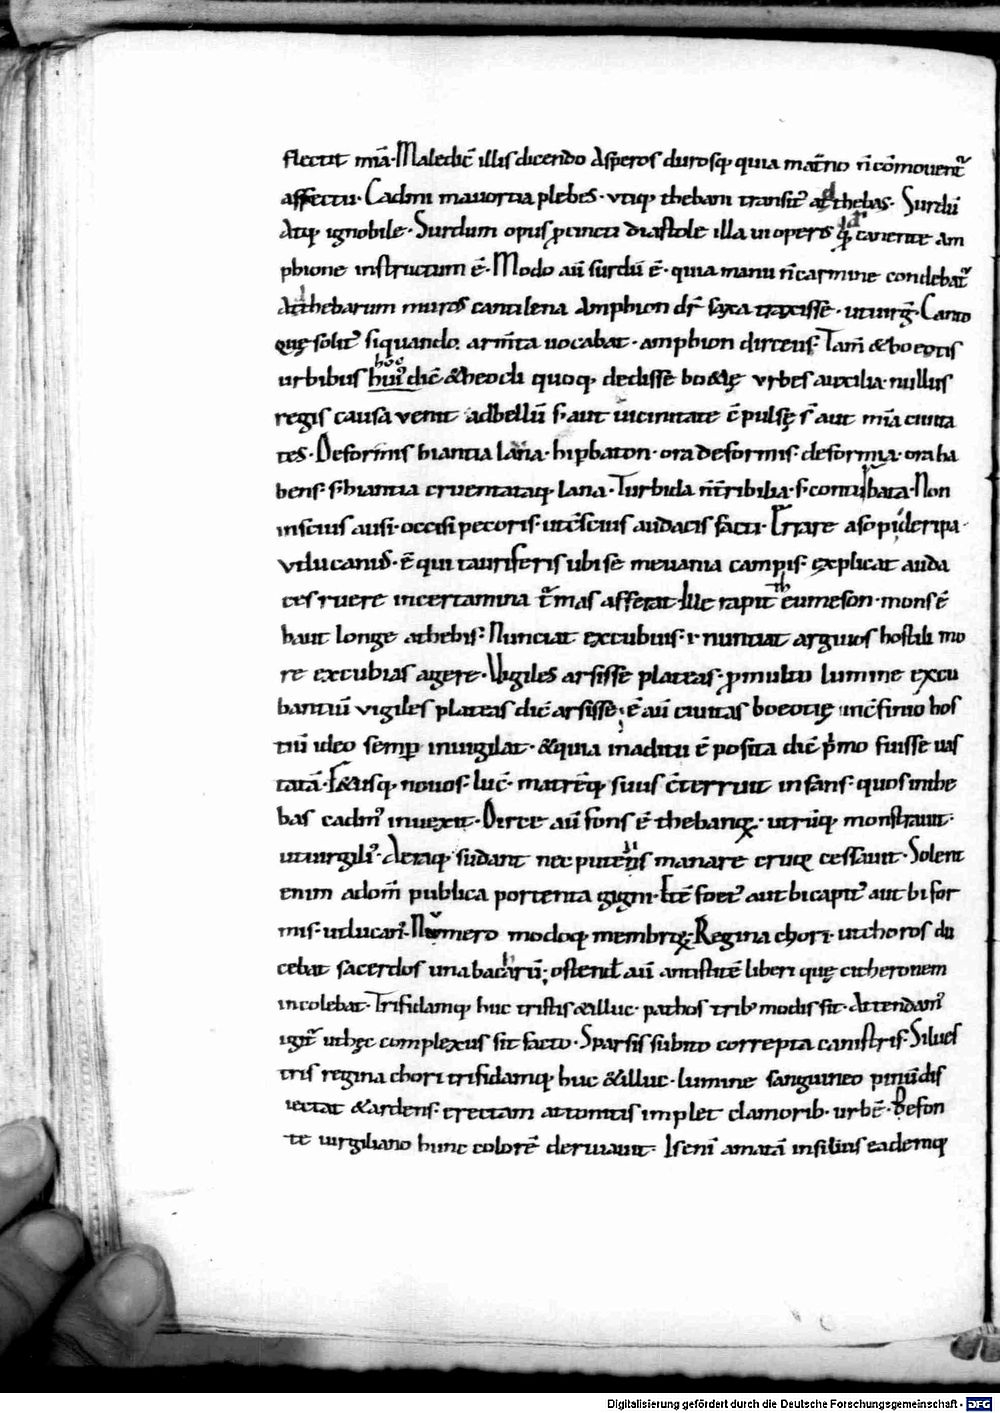 flectit mīa. Maledic̄ illis dicendo Asperos durosq; quia mat̄no n̄ com̄ouent᷑
affectu. Cadmi mauortia plebes. vtiq; thebani transit᷑ ad thebas. Surdū
Atq; ignobile. Surdum opus ꝓcincti diastole illa ui operis q̄ canente am
phione instructum ē. Modo aū surdū ē. quia manu n̄ carmine condebat᷑
Ad thebarum muros cantilena Amphion dr̄ saxa traxisse. ut uirḡ. Canto
quę solit᷑ siquando. arm̄ta uocabat. amphion dirceus. Tam̄ & boeotis
urbibus hoc hui᷑ dic̄ & heocli quoq; dedisse boetię vrbes auxilia. nullus
regis causa venit ad bellū s. aut uicinitate c̄pulsę s̄ aut mīa ciuita
tes. Deformis hiantia lana. hiꝑbaton. ora deformis. deformia. ora ha
bens. s. hiantia cruentataq; lana. Turbida mt̄ribilia. s. conturbata. Non
inscius ausi. occisi pecoris. ut c̄scius audacis facti. Errare asopide ripa.
vt lucanus. ē qui tauriferis ubi se meuania campis. explicat auda
ces ruere in certamina t̄mas afferat. Ille rapit theumeson. mons ē
haut longe a thebis. Nunciat excubiis. i. nuntiat arguios hostili mo
re excubias agere. Vigiles arsisse plateas. ꝓ multo lumine excu
bantiū vigiles plateas dic̄ arsisse. ē aū ciuitas boeotię in c̄finio hos
tiū ideo semꝑ inuigilat. & quia in aditu ē posita dic̄ p̄mo fuisse uas
tatā. Et &usq; nouos. luc̄. matrēq; suus c̄terruit infans. quos imbe
bas cadm᷑ inuexit. Dirce aū fons ē thebanꝝ. utrūq; monstrauit.
ut uirgili᷑. Aeraq; sudant nec puteris manare cruor cessauit. Solent
enim ad om̄ publica portenta gigni. Itē foet᷑ aut bicapit᷑ aut bifor
mis. ut lucan᷑. Numero modoq; membroꝝ. Regina chori. ut choros du
cebat sacerdos una bacharū. ostend̄ aū antistitē liberi quę citheronem
incolebat. Trifidamq; huc tristis & illuc. pathos trib᷑ modis fit. Attendam᷑
igit᷑ ut hęc complexus sit facto. Sparsis subito correpta canistris. Silues
tris regina chori trifidamq; huc & illuc. lumine sanguineo pinū dis
iectat & ardens. erectam attonitis implet clamorib. urbē. De fon
te uirgiliano hunc colorē deriuauit. Is enī amatā in siluis eademq;
Digitalisierung gefördert durch die Deutsche Forschungsgemeinschaft - DFG